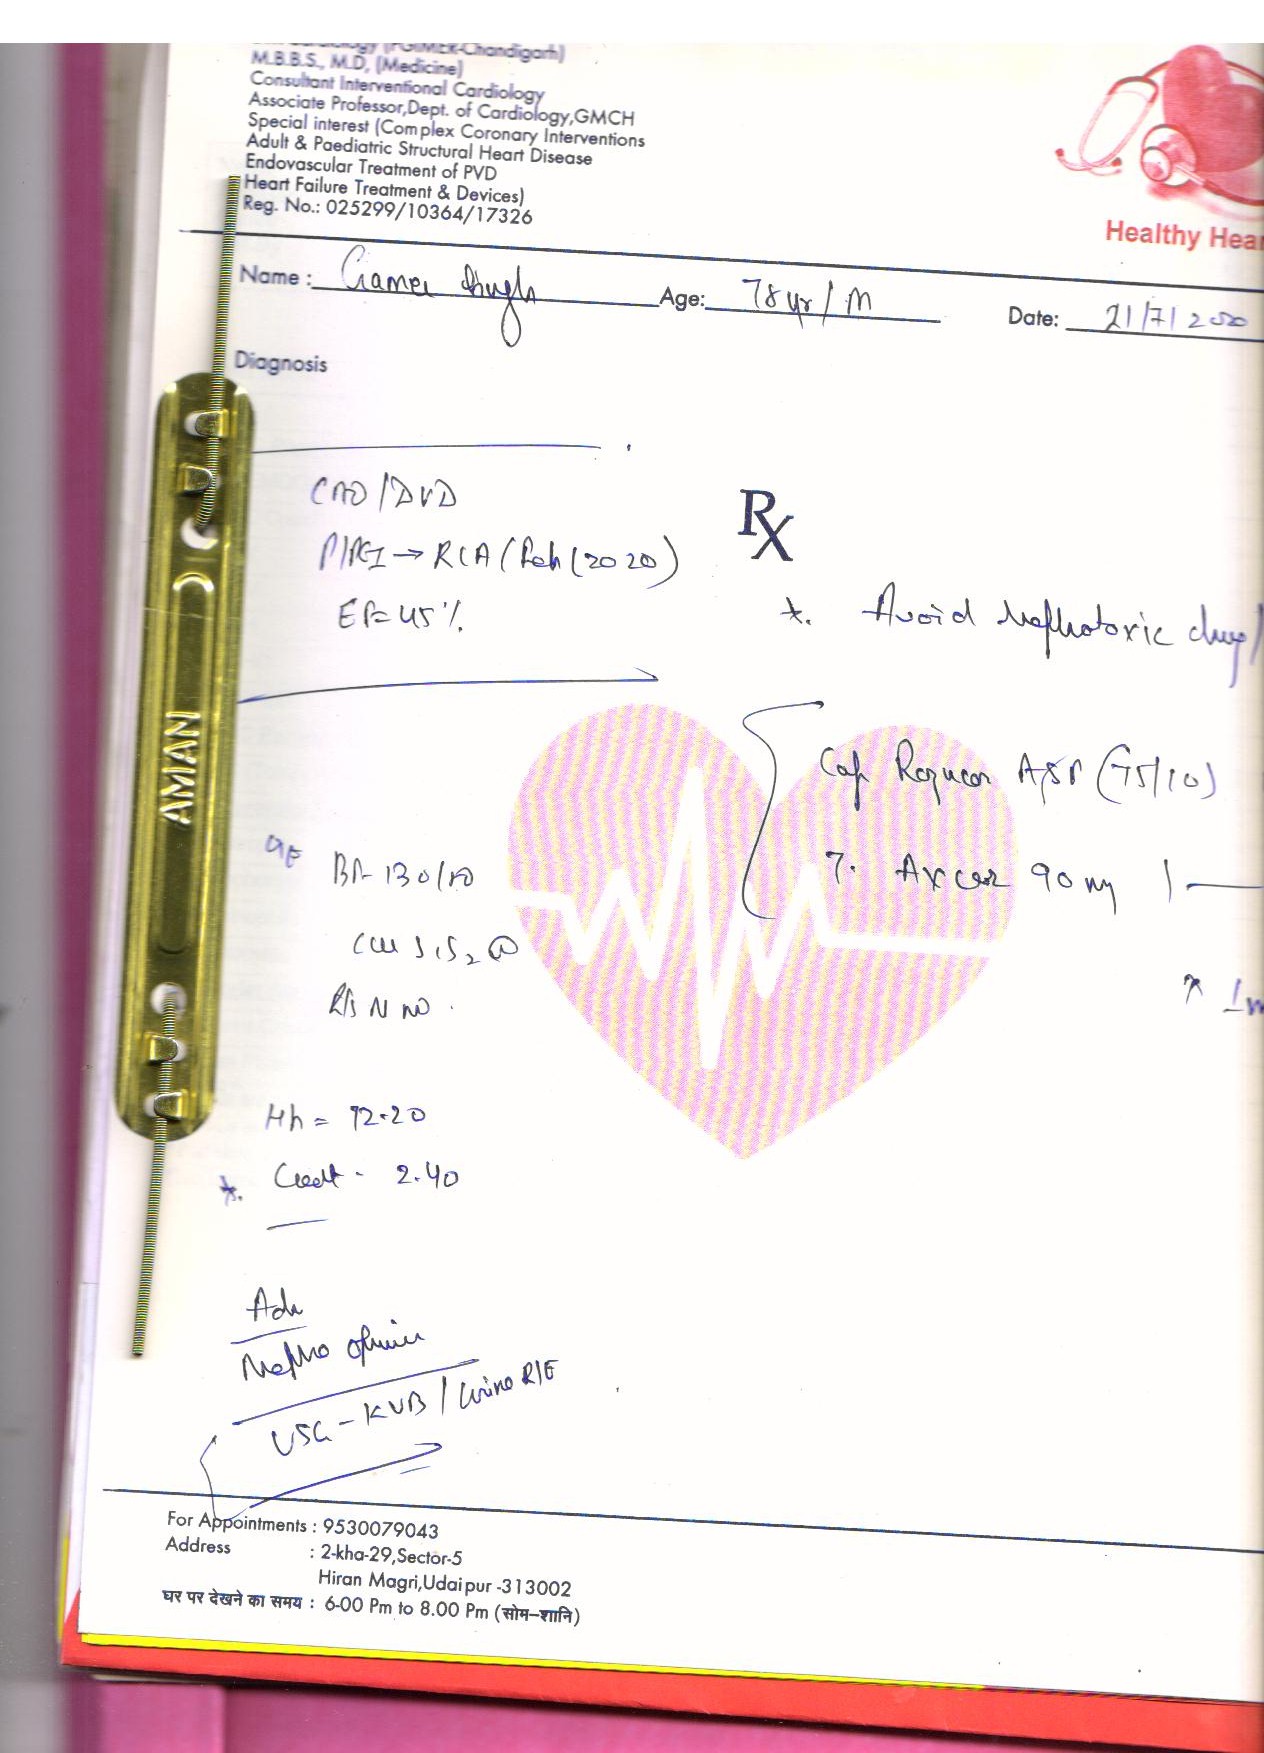 M.B.B.S., M.D, (Medicine)
Consultant Interventional Cardiology
Associate Professor,Dept. of Cardiology,GMCH
Special interest (Complex Coronary Interventions
Adult & Paediatric Structural Heart Disease
Endovascular Treatment of PVD
Heart Failure Treatment & Devices)
Reg. No.: 025299/10364/17326
Healthy Hear
Name : Singh
Age: 78 yr / M
Date: 21/7/2020
Diagnosis
CAD/DVD
→ RCA (Feb (2020)
EF= 45%
Rx
*. Avoid Nephrotoxic drug/
Cap ASP (75/10)
T. Axcer 90 mg 1—
AMAN
O/E
BP- 130/80
CVS S1S2
R/S N
Hb = 12.20
*. Creat - 2.40
Adv
Nephro opinion
USG - KUB / Urine R/E
For Appointments : 9530079043
Address : 2-kha-29,Sector-5
Hiran Magri,Udaipur -313002
घर पर देखने का समय : 6-00 Pm to 8.00 Pm (सोम–शानि)